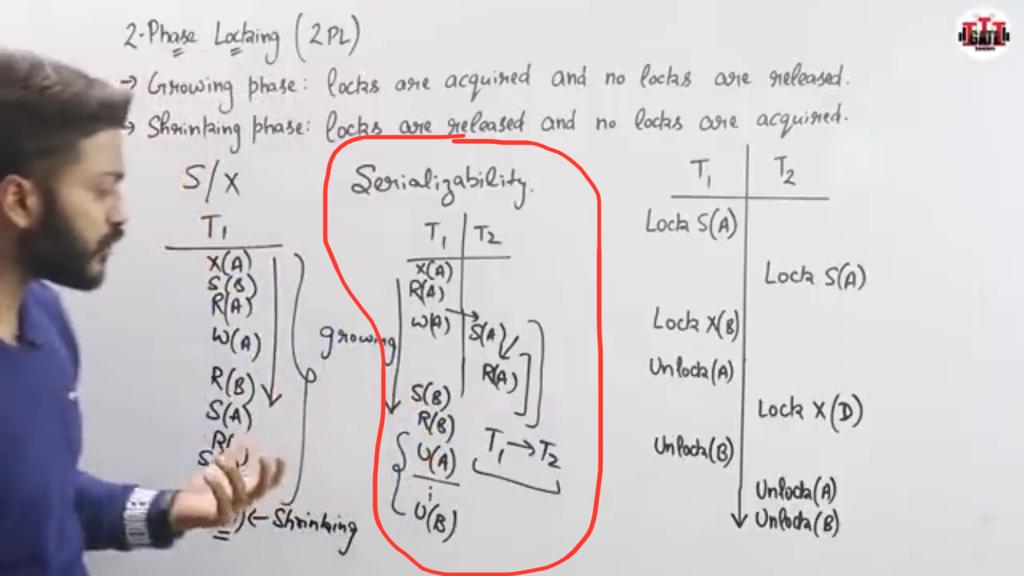 2-Phase Locking (2PL)
→ Growing phase: locks are acquired and no locks are released.
→ Shrinking phase: locks are released and no locks are acquired.
S/X
T1
X(A)
S(B)
R(A)
W(A)
R(B)
S(A)
growing
←Shrinking
Serializability.
T1 T2
X(A)
R(A)
W(A)
S(A)
R(A)
S(B)
R(B)
U(A)
U(B)
T1→T2
T1 T2
Lock S(A)
Lock S(A)
Lock X(B)
Unlock(A)
Lock X(D)
Unlock(B)
Unlock(A)
Unlock(B)
GATE